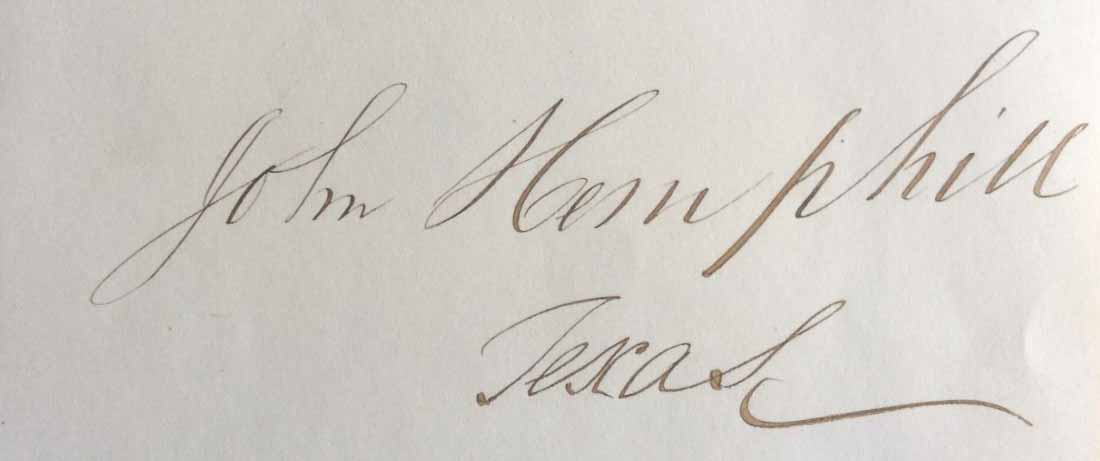 John Hemphill
Texas